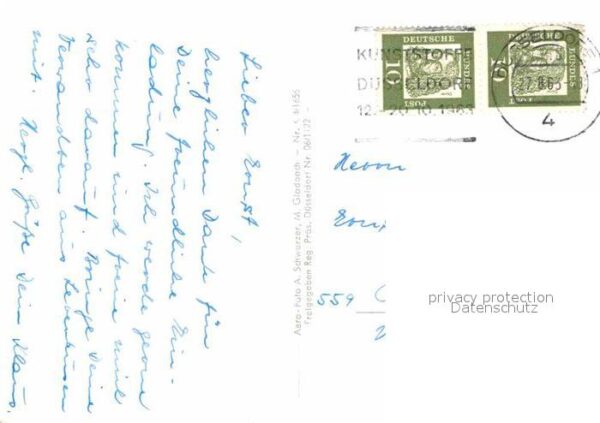 Lieber Ernst,
herzlichen Dank für
Deine freundliche Ein-
ladung. Ich werde gerne
kommen und freue mich
sehr darauf. Bringe Deine
Verwandten aus Leverkusen
mit. Herzl. Grüße Dein Klaus.
Aero-Foto A. Schwarzer, M. Gladbach - Nr.
Freigegeben Reg. Präs. Düsseldorf Nr. 06/1/22 -
KUNSTSTOFFE
DÜSSELDORF
12. - 20. 10. 1963
DEUTSCHE
BUNDES
POST
10
DEUTSCHE
BUNDES
POST
10
DÜSSELDORF
4
Herrn
Ernst
559
privacy protection
Datenschutz